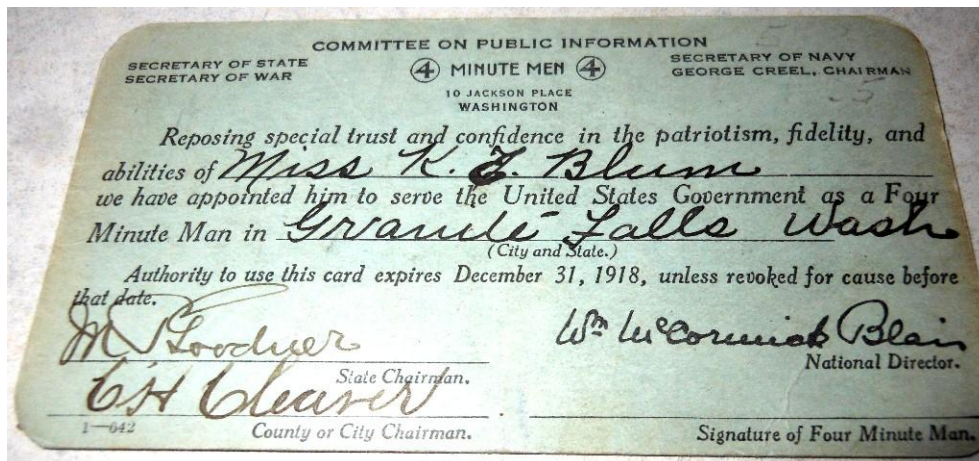 COMMITTEE ON PUBLIC INFORMATION
SECRETARY OF STATE
SECRETARY OF WAR
4 MINUTE MEN 4
SECRETARY OF NAVY
GEORGE CREEL, CHAIRMAN
10 JACKSON PLACE
WASHINGTON
Reposing special trust and confidence in the patriotism, fidelity, and
abilities of Miss K. F. Blum
we have appointed him to serve the United States Government as a Four
Minute Man in Granite Falls Wash
(City and State.)
Authority to use this card expires December 31, 1918, unless revoked for cause before
that date.
M Goodner
Wm McCormick Blair
State Chairman.
National Director.
C H Cleaver
1—642
County or City Chairman.
Signature of Four Minute Man.